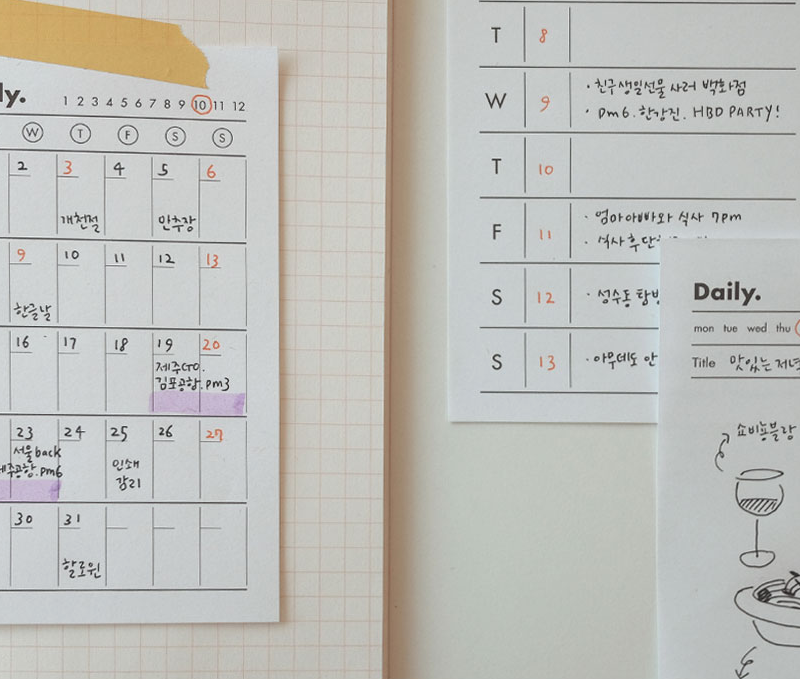 ly.
1 2 3 4 5 6 7 8 9 10 11 12
W T F S S
2 3 4 5 6
개천절 만추장
9 10 11 12 13
한글날
16 17 18 19 20
제주GO.
김포공항.pm3
23 24 25 26 27
서울back
제주공항.pm6
인쇄
감리
30 31
할로윈
T 8
W 9
· 친구생일선물 사러 백화점
· pm6. 한강진. HBD PARTY!
T 10
F 11
· 엄마아빠와 식사 7pm
· 식사 후
S 12
· 성수동 탐방
S 13
· 아무데도 안
Daily.
mon tue wed thu
Title 맛있는 저녁
쇼비뇽블랑